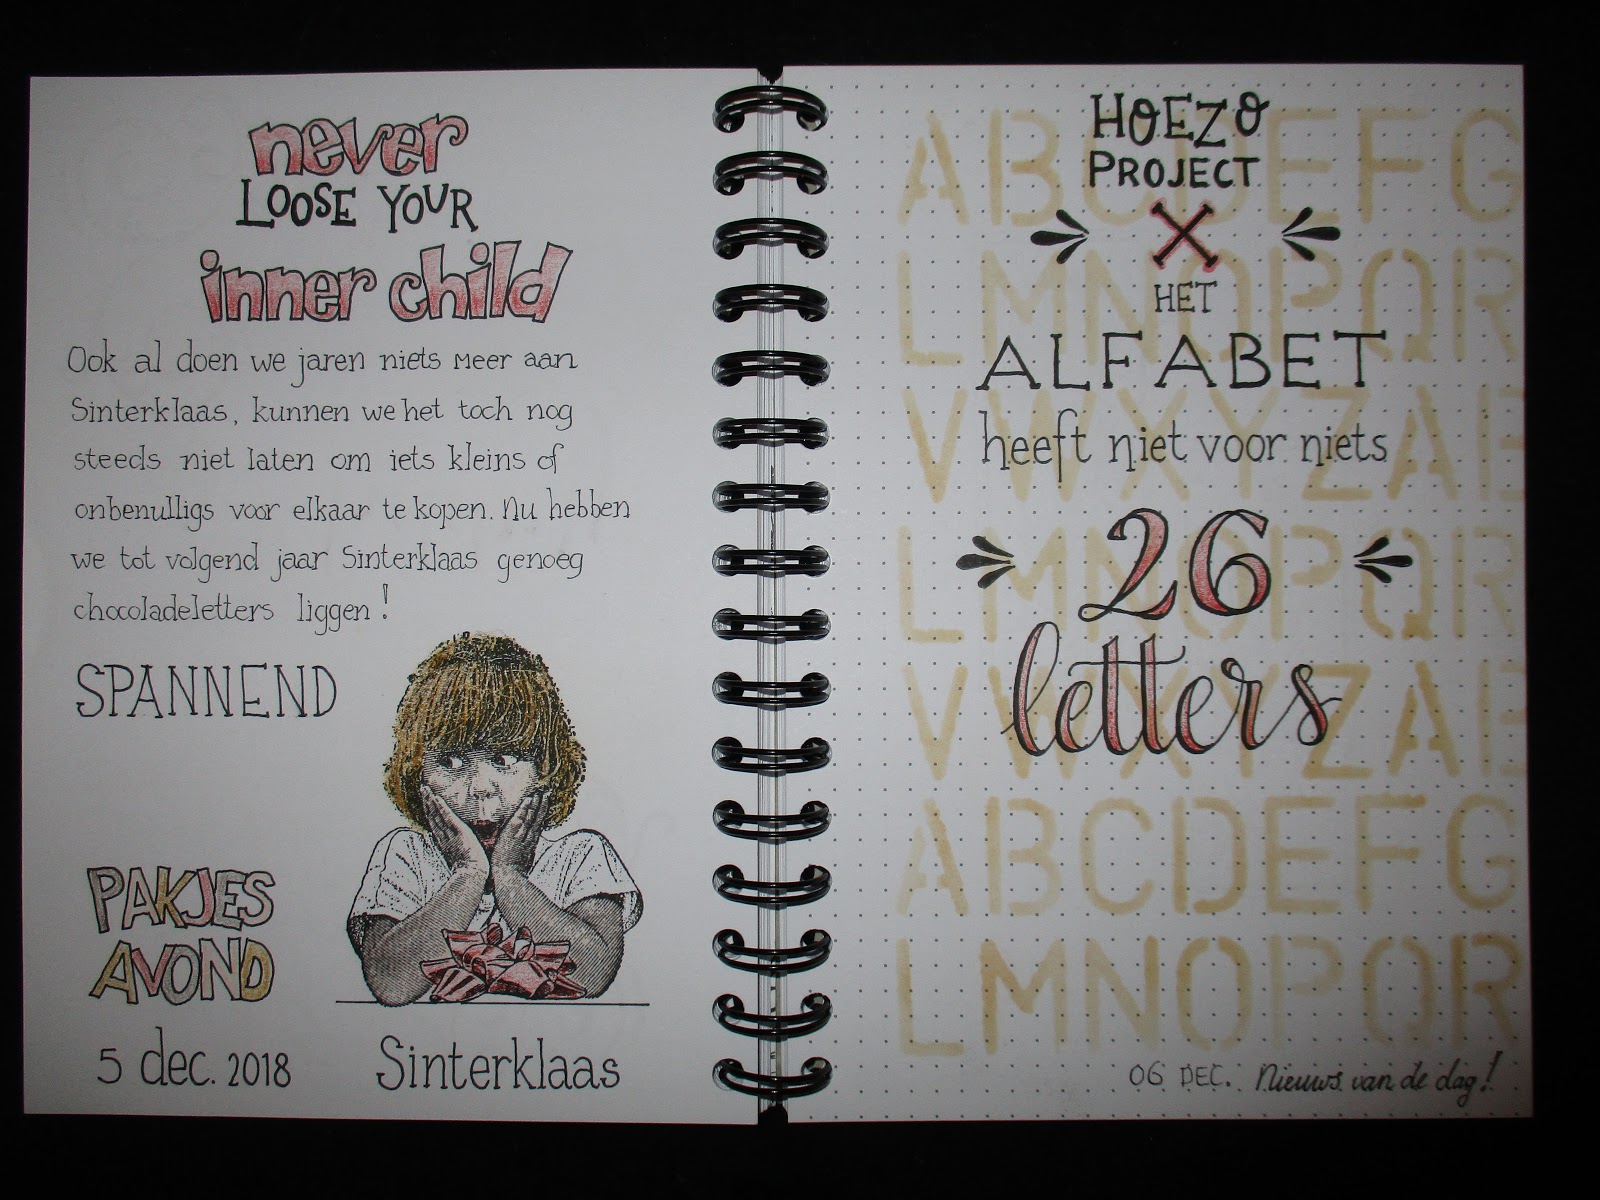 never
LOOSE YOUR
inner child
Ook al doen we jaren niets meer aan
Sinterklaas, kunnen we het toch nog
steeds niet laten om iets kleins of
onbenulligs voor elkaar te kopen. Nu hebben
we tot volgend jaar Sinterklaas genoeg
chocoladeletters liggen!
SPANNEND
PAKJES
AVOND
5 dec. 2018
Sinterklaas
HOEZO
PROJECT
X
HET
ALFABET
heeft niet voor niets
26
letters
06 DEC. Nieuws van de dag!
ABCDEFG
LMNOPQR
VWXYZAB
LMNOPQR
VWXYZAB
ABCDEFG
LMNOPQR